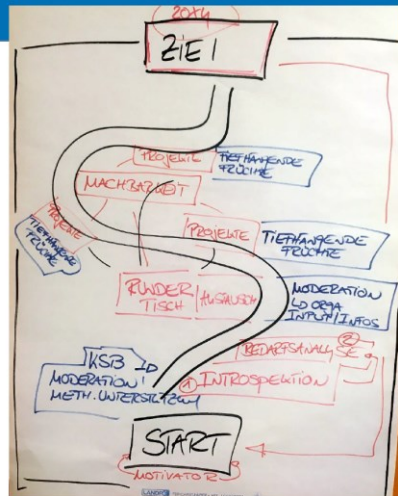 ZIEL
PROJEKTE
TIEFHÄNGENDE
FRÜCHTE
MACHBARKEIT
PROJEKTE
TIEFHÄNGENDE
FRÜCHTE
PROJEKTE
TIEFHÄNGENDE
FRÜCHTE
RUNDER
TISCH
/AUSTAUSCH
MODERATION
ORGA
INPUT/INFOS
BEDARFSANALYSE
②
KSB
MODERATION
METH. UNTERSTÜTZUNG
① INTROSPEKTION
START
MOTIVATOR